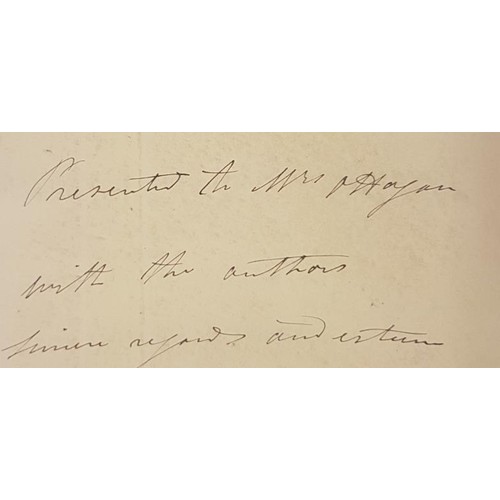 Presented to Mrs O'Hagan
with the authors
sincere regards and esteem